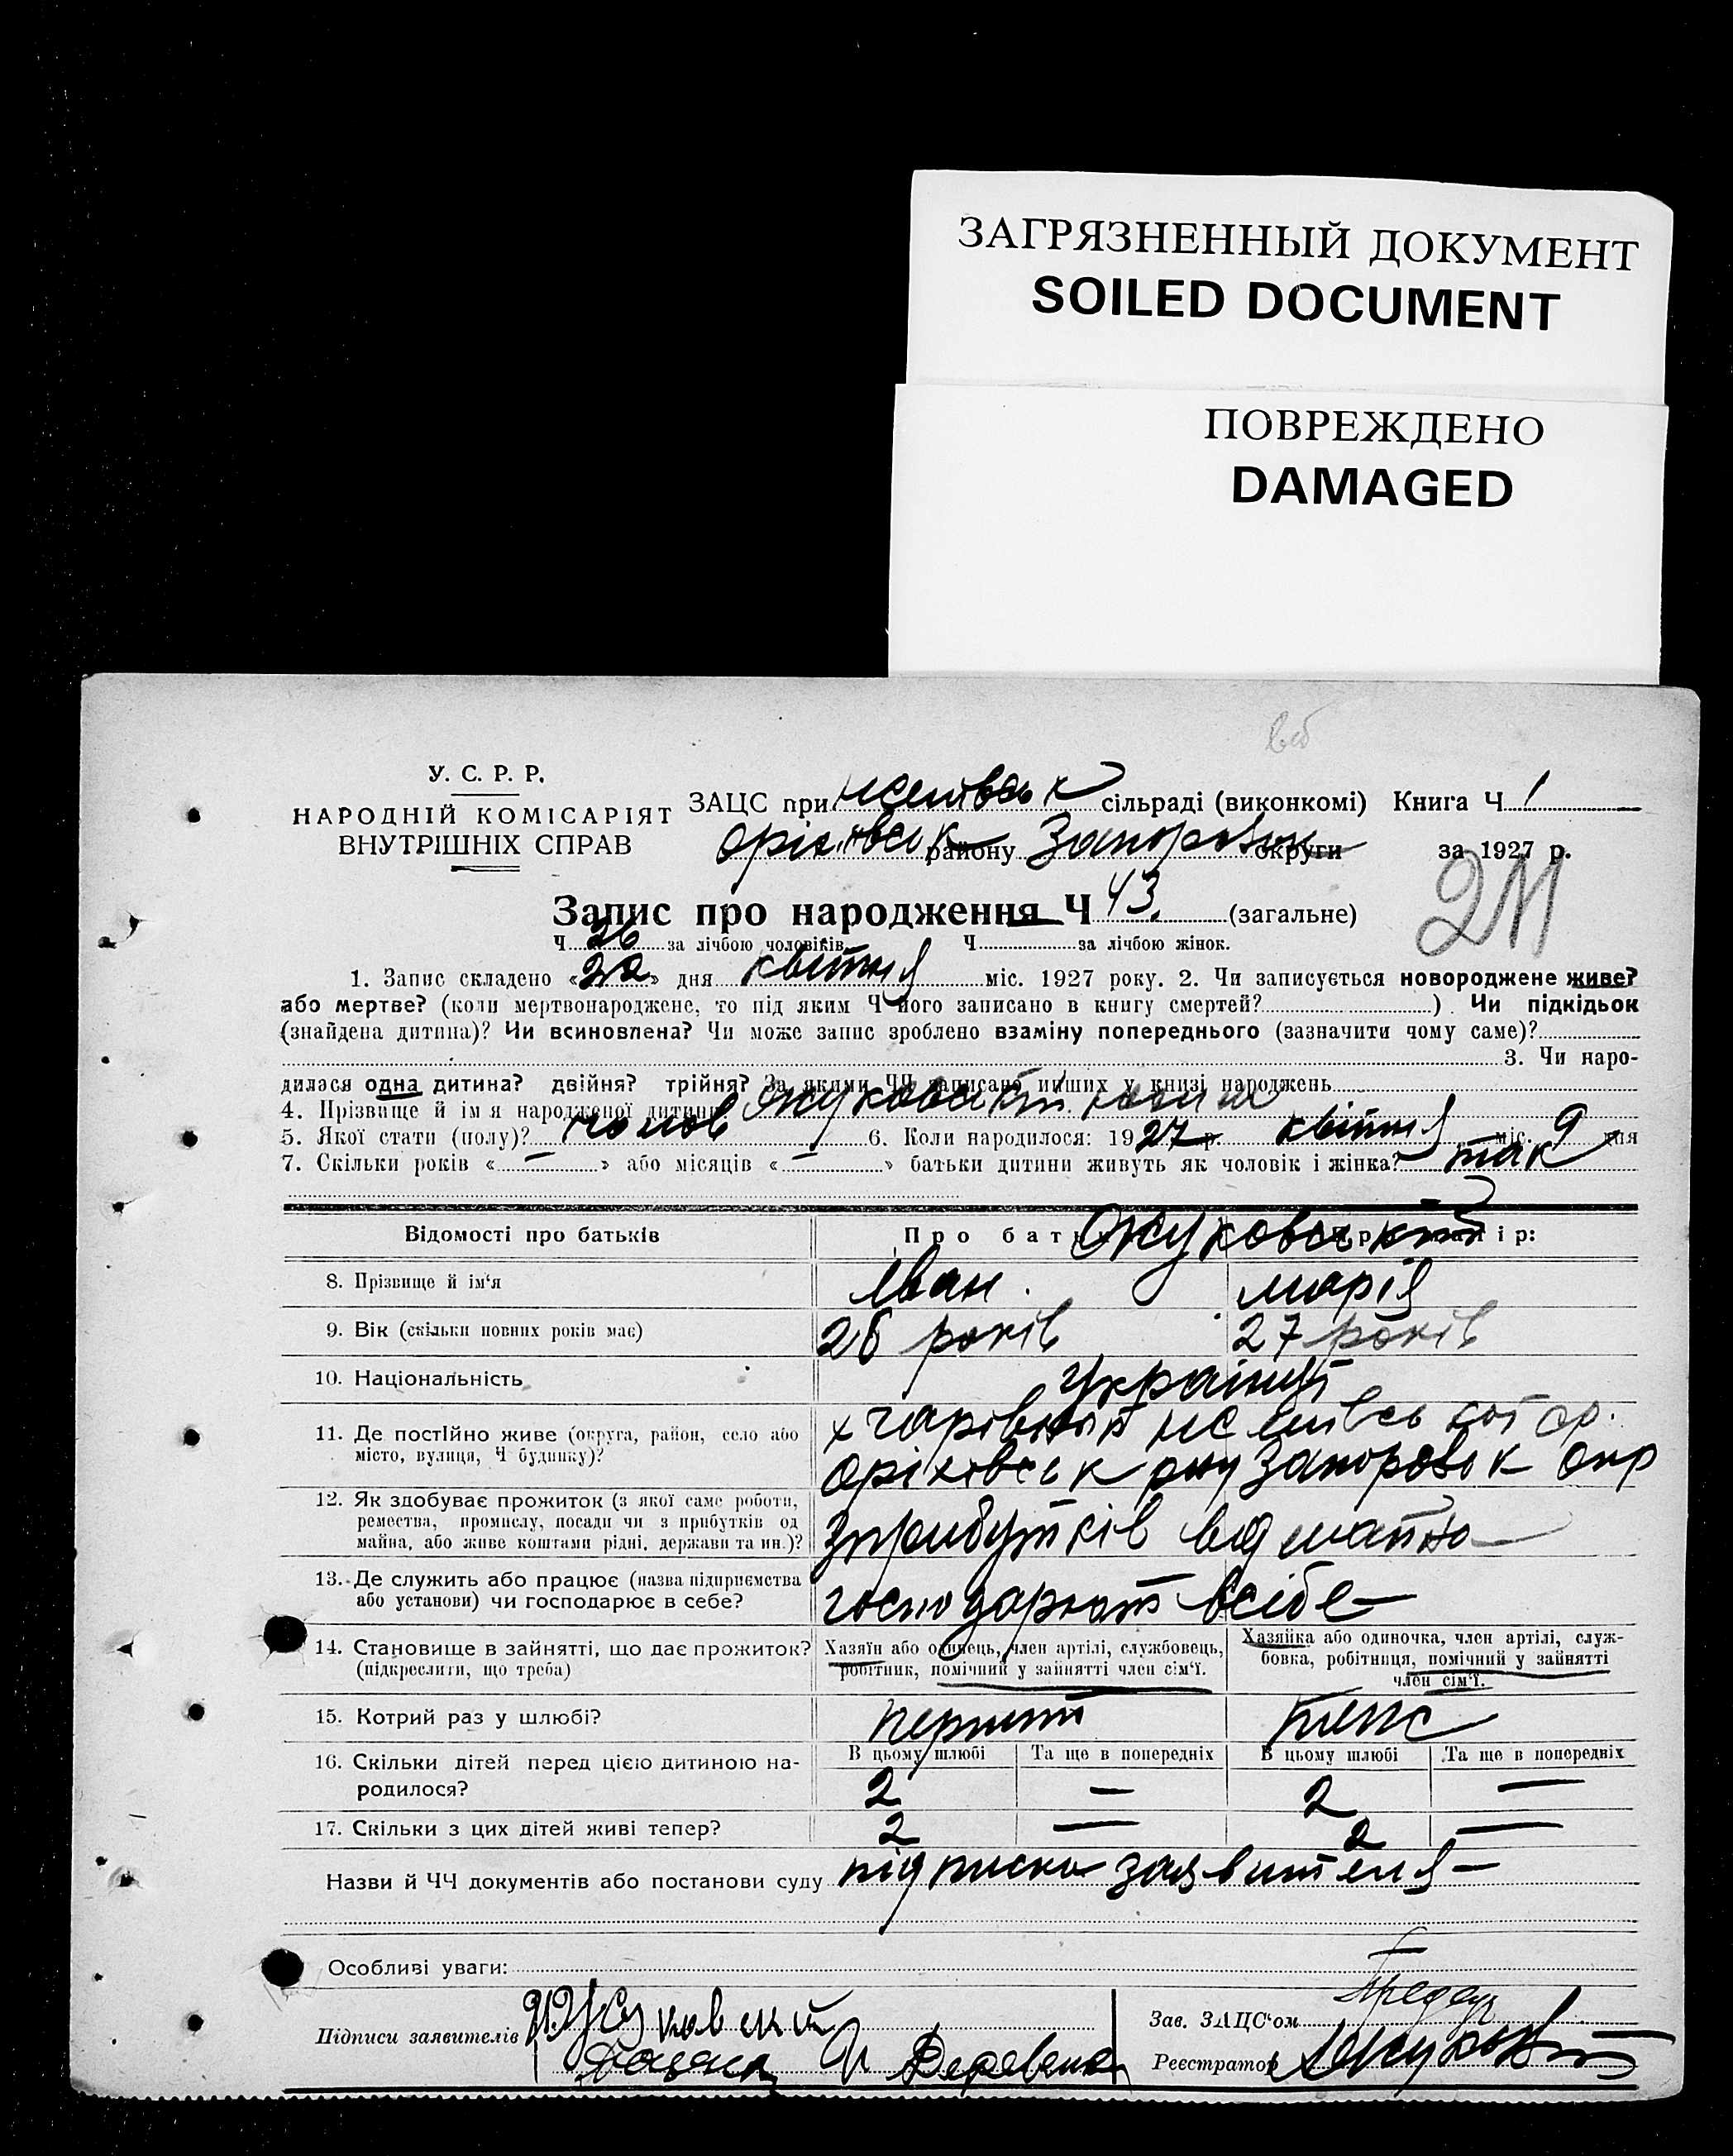 ЗАГРЯЗНЕННЫЙ ДОКУМЕНТ
SOILED DOCUMENT
ПОВРЕЖДЕНО
DAMAGED
У. С. Р. Р.
НАРОДНІЙ КОМІСАРІЯТ
ВНУТРІШНІХ СПРАВ
ЗАЦС при сільраді (виконкомі) Книга Ч 1
району округи за 1927 р.
Запис про народження Ч 43. (загальне)
Ч. 26 за лічбою чоловіків Ч. за лічбою жінок.
1. Запис складено «22» дня квітня міс. 1927 року. 2. Чи записується новороджене живе?
або мертве? (коли мертвонароджене, то під яким Ч його записано в книгу смертей? ). Чи підкідьок
(знайдена дитина)? Чи всиновлена? Чи може запис зроблено взаміну попереднього (зазначити чому саме)?
3. Чи наро-
дилася одна дитина? двійня? трійня? За якими ЧЧ записано инших у книзі народжень
4. Прізвище й ім'я народженої дитини
5. Якої стати (полу)? чолов 6. Коли народилося: 1927 р. квітня міс. 9 дня
7. Скільки років «—» або місяців «—» батьки дитини живуть як чоловік і жінка? так
Відомості про батьків
Про бать
Жуковський
8. Прізвище й ім'я Іван. Марія
9. Вік (скільки повних років має) 26 років 27 років
10. Національність
11. Де постійно живе (округа, район, село або
місто, вулиця, Ч будинку)?
12. Як здобуває прожиток (з якої саме роботи,
ремества, промислу, посади чи з прибутків од
майна, або живе коштами рідні, держави та ин.)?
зприбутків від майна
13. Де служить або працює (назва підприємства
або установи) чи господарює в себе?
господарюють всібе
14. Становище в зайнятті, що дає прожиток?
(підкреслити, що треба)
Хазяїн або одинець, член артілі, службовець,
робітник, помічний у зайнятті член сім'ї.
Хазяйка або одиночка, член артілі, служ-
бовка, робітниця, помічний у зайнятті
член сім'ї.
15. Котрий раз у шлюбі? перший теж
В цьому шлюбі Та ще в попередніх В цьому шлюбі Та ще в попередніх
16. Скільки дітей перед цією дитиною на-
родилося?
2 — 2 —
17. Скільки з цих дітей живі тепер? 2 — 2 —
Назви й ЧЧ документів або постанови суду підписка заявителя —
Особливі уваги:
Підписи заявителів
Зав. ЗАЦС'ом
Реєстратор